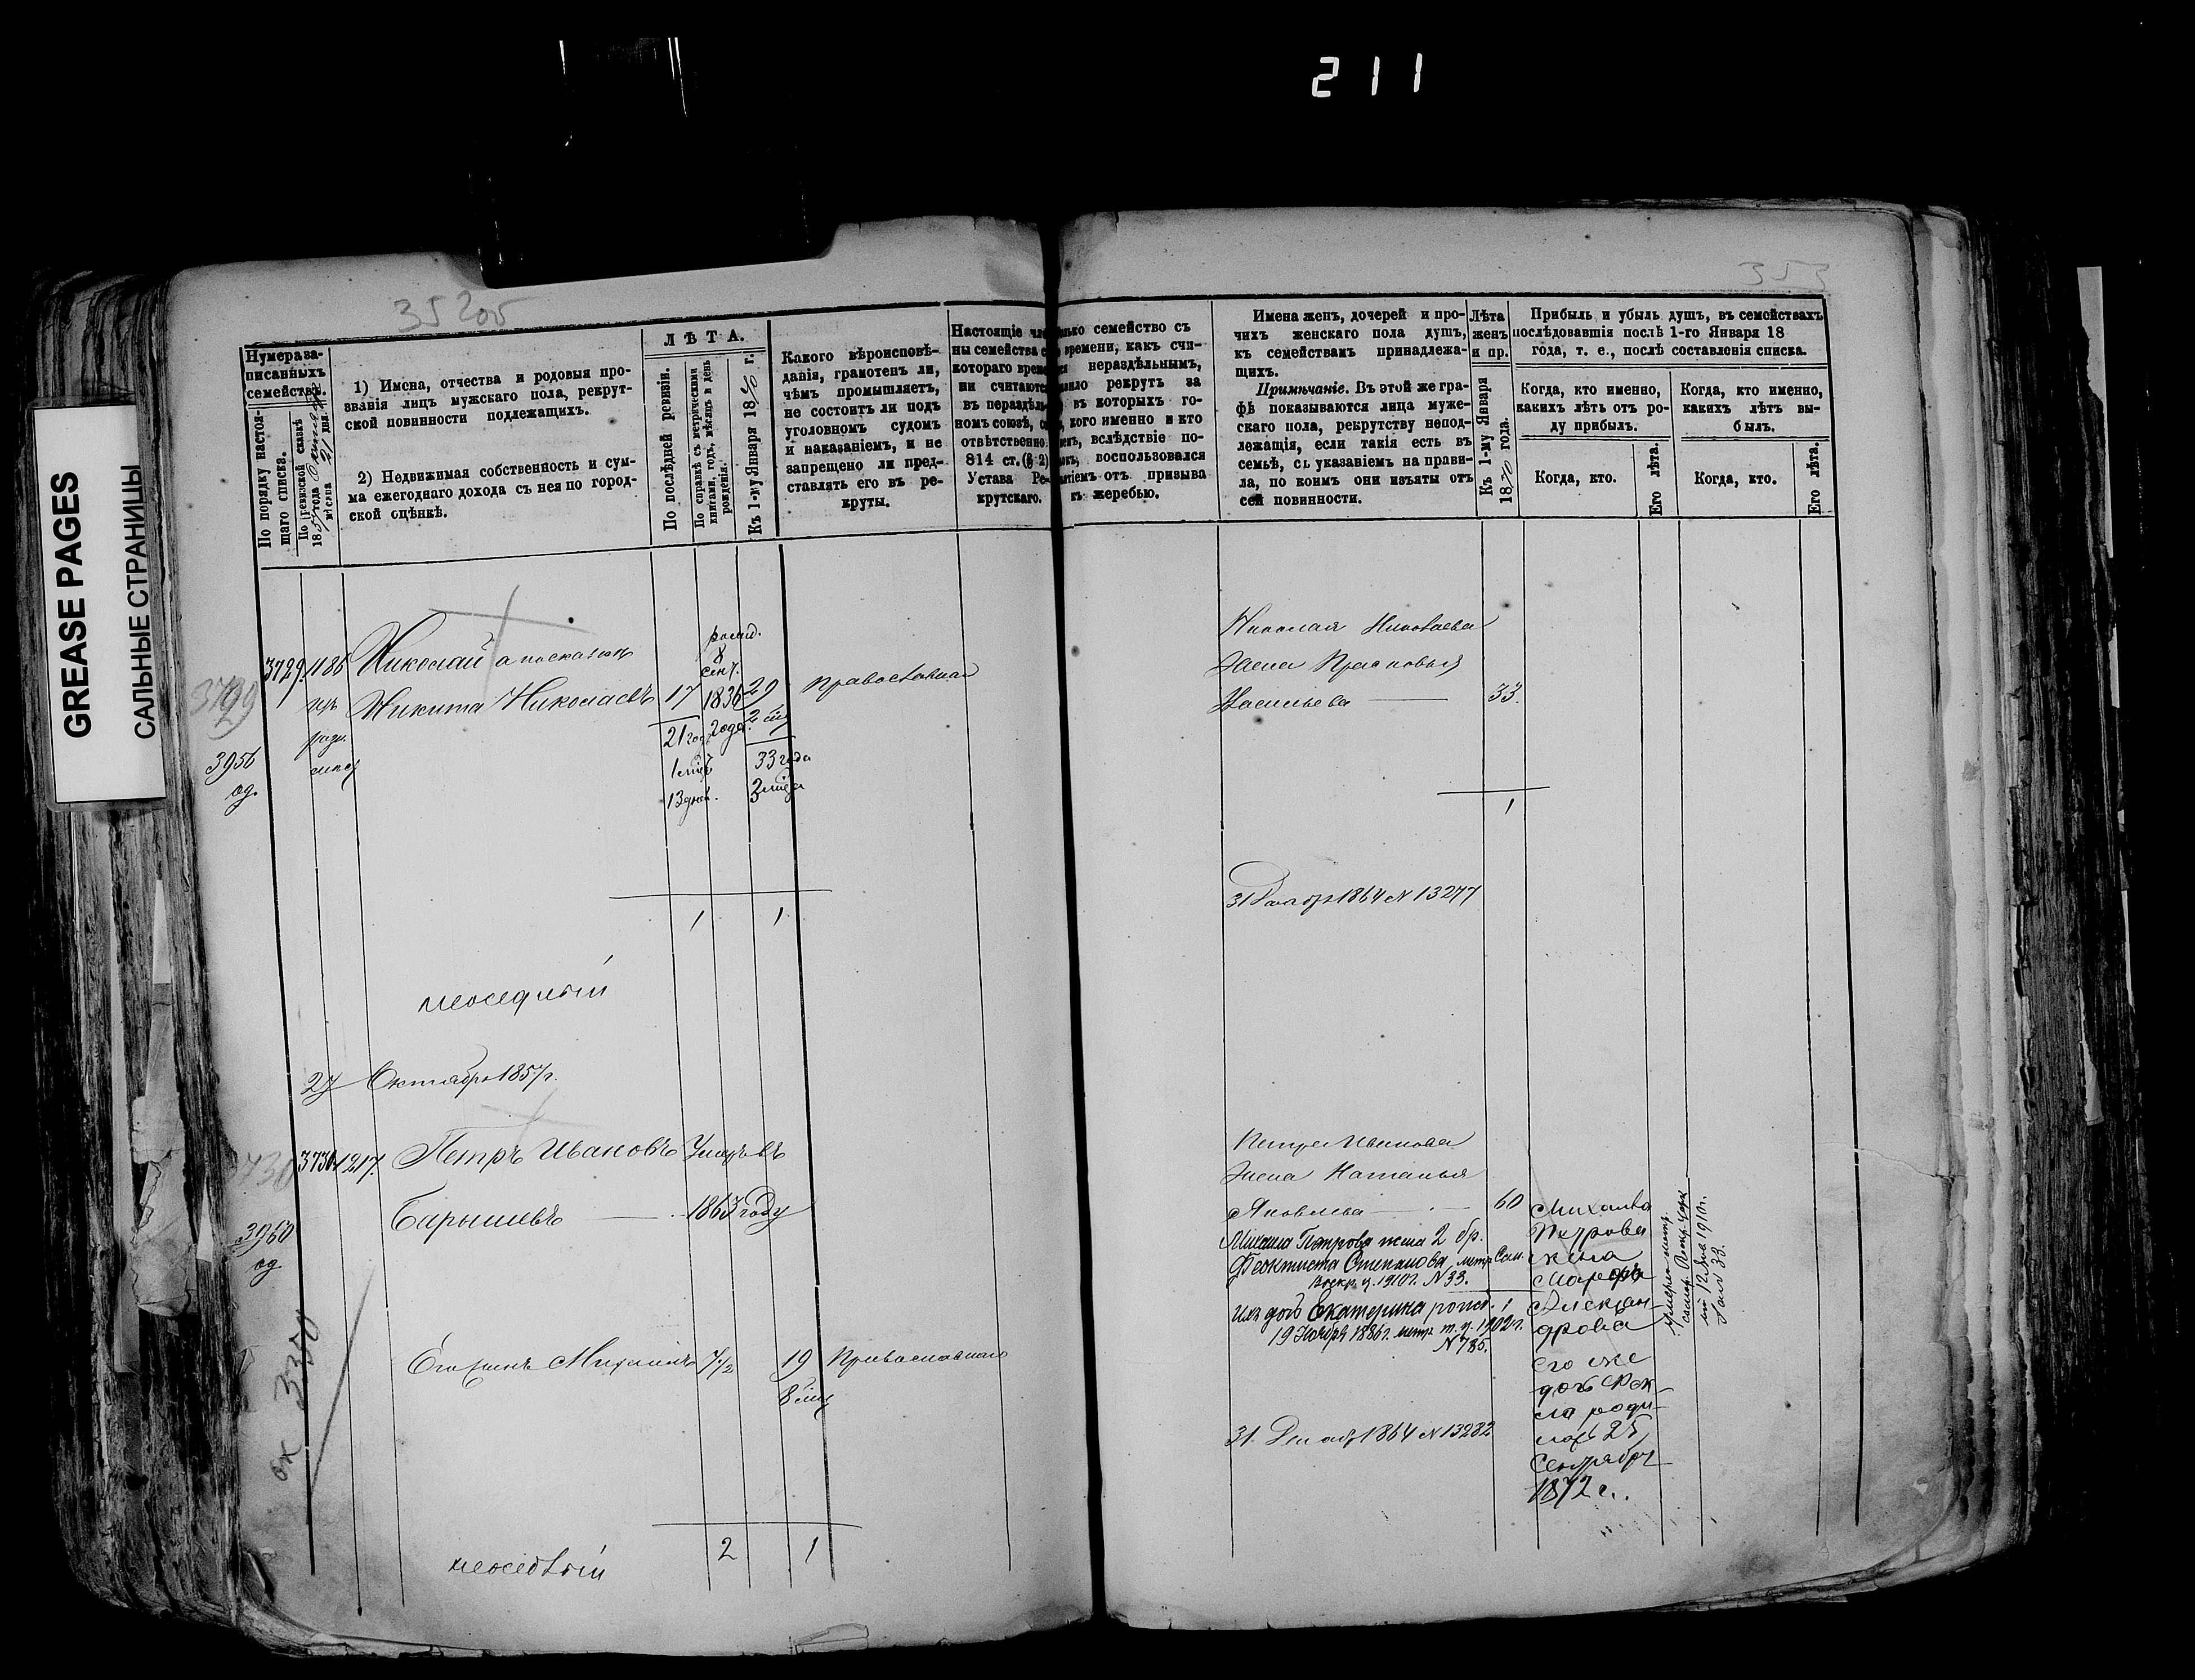 211
GREASE PAGES
САЛЬНЫЕ СТРАНИЦЫ
353
Нумера за-
писанныхъ
семействъ.
По порядку настоя-
щаго списка.
По ревизской сказкѣ
1857 года Октября
мѣсяца 21 дня.
1) Имена, отчества и родовыя про-
званія лицъ мужскаго пола, рекрут-
ской повинности подлежащихъ.
2) Недвижимая собственность и сум-
ма ежегоднаго дохода съ нея по город-
ской оцѣнкѣ.
ЛѢТА.
По послѣдней ревизіи.
По справкѣ съ метрическими
книгами, годъ, мѣсяцъ и день
рожденія.
Къ 1-му Января 1870 г.
Какого вѣроисповѣ-
данія, грамотенъ ли,
чѣмъ промышляетъ,
не состоитъ ли подъ
уголовнымъ судомъ
и наказаніемъ, и не
запрещено ли пред-
ставлять его въ ре-
круты.
Настоящіе чле
ны семейства с
котораго време
ни считаются
въ нераздѣль
номъ союзѣ, с
отвѣтственно
814 ст. (§ 2)
Устава Ре-
крутскаго.
семейство съ
времени, какъ счи-
нераздѣльнымъ,
рекрутъ за
въ которыхъ го-
кого именно и кто
вслѣдствіе по-
воспользовался
отъ призыва
къ жеребью.
Имена женъ, дочерей и про-
чихъ женскаго пола душъ,
къ семействамъ принадлежа-
щихъ.
Примѣчаніе. Въ этой же гра-
фѣ показываются лица муже-
скаго пола, рекрутству непод-
лежащія, если такія есть въ
семьѣ, съ указаніемъ на прави-
ла, по коимъ они изъяты отъ
сей повинности.
Лѣта
женъ
и пр.
Къ 1-му Января
1870 года.
Прибыль и убыль душъ, въ семействахъ
послѣдовавшія послѣ 1-го Января 18
года, т. е., послѣ составленія списка.
Когда, кто именно,
какихъ лѣтъ отъ ро-
ду прибылъ.
Когда, кто.
Его лѣта.
Когда, кто именно,
какихъ лѣтъ вы-
былъ.
Когда, кто.
Его лѣта.
3729 1186 Николай
Никита Николаевъ 17
рожд.
8
сент.
1836
29
Православнаго
3729
21 год. 2 года
1 мѣс
13 дней.
33 года
3 мѣся
3956
од.
1 1
неоседлый
Николая Николаева
жена Прасковья
Васильева 33.
1
31 Декабр 1864 N 13277
27 Октября 1857 г.
3730 1217. Петръ Ивановъ Умеръ въ
Барышевъ 1863 году
3960
од
ок 3350
Его сынъ Михаилъ 7 1/2 19 Православнаго
8 мѣс
2 1
неоседлый
Петра Иванова
жена Наталья
Яковлева 60
Михаила Петрова жена 2 бр.
Феоктиста Степанова, метр. Сам.
Воскр. ц. 1910 г. N 33.
1
ихъ дочь Екатерина рожд.
19 Ноября 1886 г. метр. т. ц. 1902 г.
N 785.
31 Декабр 1864 N 13282
Михаила
Петрова
жена
Марфа
Алексан-
дрова
его же
дочь Фек-
ла роди-
лась 25
Сентября
1872 г.